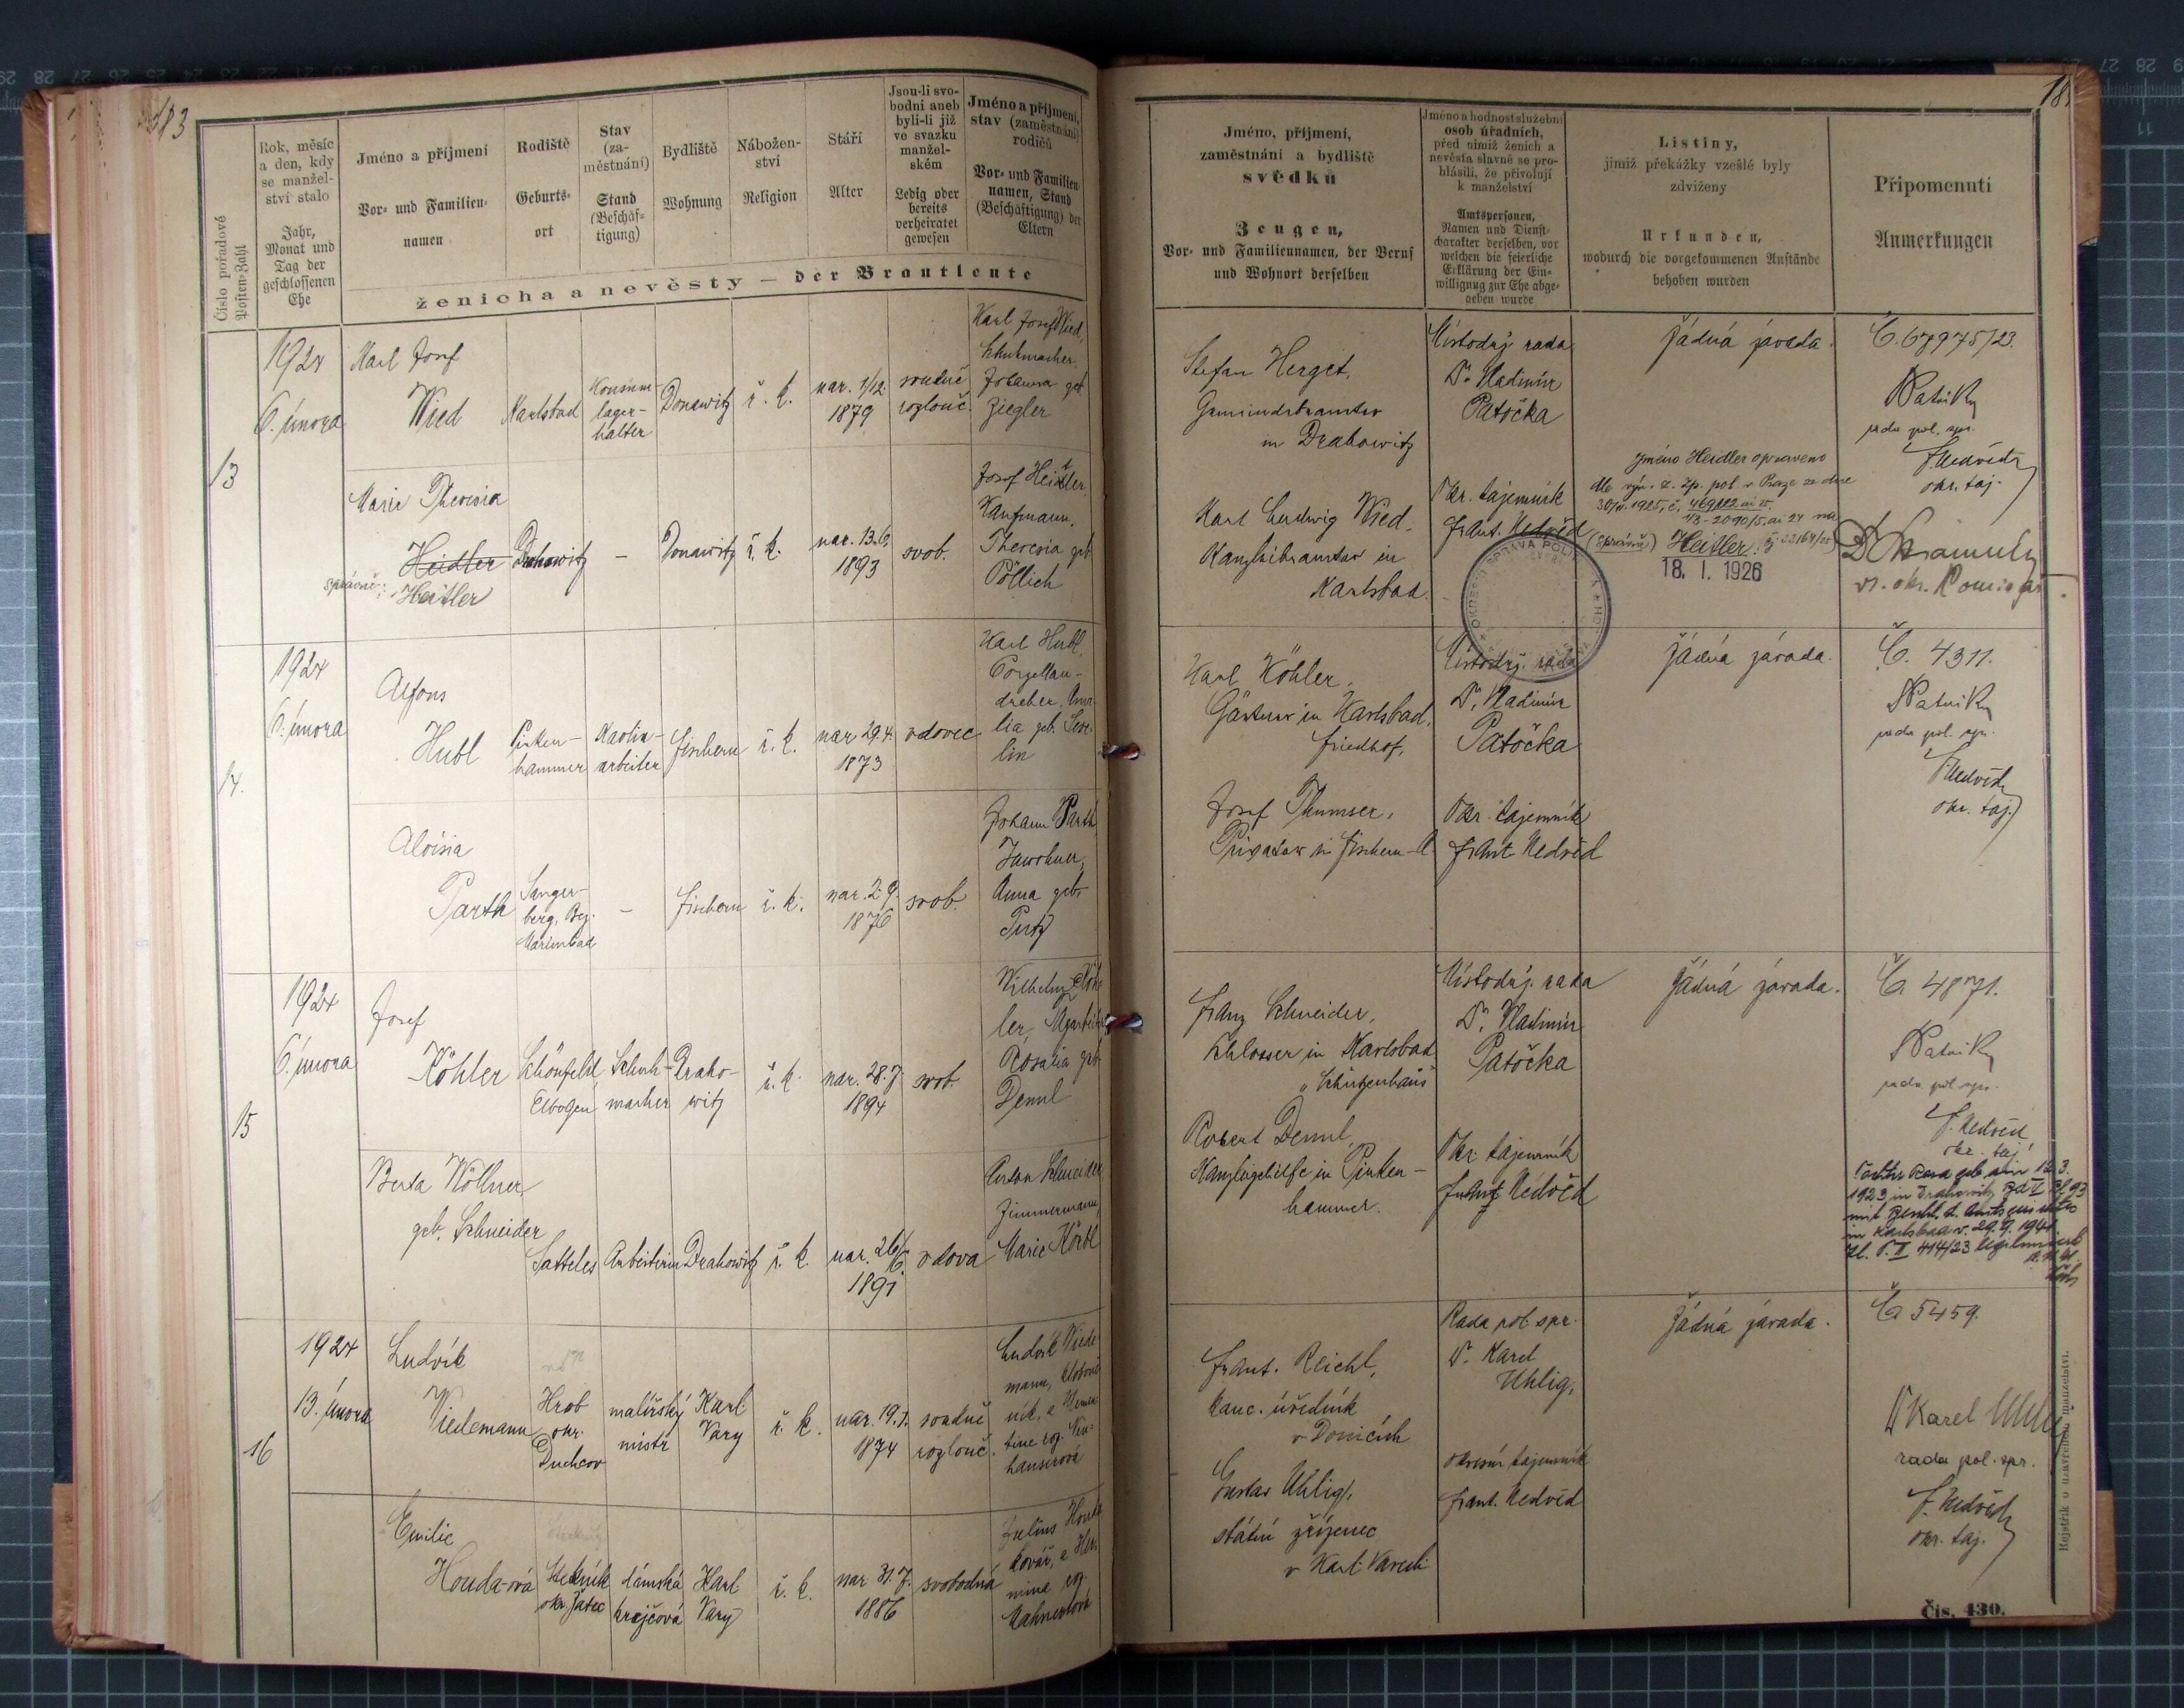 Číslo pořadové
Posten-Zahl
Rok, měsíc
a den, kdy
se manžel-
ství stalo
Jahr,
Monat und
Tag der
geschlossenen
Ehe
Jméno a příjmení
Vor- und Familien-
namen
Rodiště
Geburts-
ort
Stav
(za-
městnání)
Stand
(Beschäf-
tigung)
Bydliště
Wohnung
Nábožen-
ství
Religion
Stáří
Alter
Jsou-li svo-
bodni aneb
byli-li již
ve svazku
manžel-
ském
Ledig oder
bereits
verheiratet
gewesen
Jméno a příjmení,
stav (zaměstnání)
rodičů
Vor- und Familien-
namen, Stand
(Beschäftigung) der
Eltern
ženicha a nevěsty — der Brautleute
13
1924
6. února
Karl Josef
Wied
Karlsbad
Konsum-
lager-
halter
Donawitz
ř. k.
nar. 1/12.
1879
soudně
rozlouč.
Karl Josef Wied,
Schuhmacher.
Johanna geb.
Ziegler
Marie Theresia
Heidler
správně: Heitler
Drahowitz
–
Donawitz
ř. k.
nar. 13.6.
1893
svob.
Josef Heitler,
Kaufmann.
Theresia geb.
Pöllich
14.
1924
6. února
Alfons
Hubl
Pirken-
hammer
Kaolin-
arbeiter
Fischern
ř. k.
nar 29.4.
1873
vdovec
Karl Hubl,
Porzellan-
dreher, Ama-
lia geb.
Aloisia
Parth
Sanger-
berg, Bez.
Marienbad
–
Fischern
ř. k.
nar. 2.9.
1876
svob.
Johann Parth
Inwohner,
Anna geb.
Putz
15
1924
6. února
Josef
Köhler
Schönfeld
Elbogen
Schuh-
macher
Draho-
witz
ř. k.
nar. 28.7.
1894
svob.
Wilhelm Köh-
ler,
Rosalia geb.
Deml
Berta Wöllner,
geb. Schneider
Satteles
Arbeiterin
Drahowitz
ř. k.
nar. 26/6
1891
vdova
Anton Schneider
Zimmermann,
Marie Körbl
16
1924
13. února
Ludvík
Wiedemann
Hrob
okr.
Duchcov
malířský
mistr
Karl.
Vary
ř. k.
nar. 19.1.
1874
soudně
rozlouč.
Ludvík Wiede-
mann, klobouč-
ník, a
tine roz.
hauserová
Emilie
Houda-ová
okr. Žatec
dámská
krejčová
Karl
Vary
ř. k.
nar 31.7.
1886
svobodná
Julius Houda
kovář, a Her-
mina roz.
Jméno, příjmení,
zaměstnání a bydliště
svědků
Zeugen,
Vor- und Familiennamen, der Beruf
und Wohnort derselben
Jméno a hodnost služební
osob úřadních,
před nimiž ženich a
nevěsta slavně se pro-
hlásili, že přivolují
k manželství
Amtspersonen,
Namen und Dienst-
charakter derselben, vor
welchen die feierliche
Erklärung der Ein-
willigung zur Ehe abge-
geben wurde
Listiny,
jimiž překážky vzešlé byly
zdviženy
Urkunden,
wodurch die vorgekommenen Anstände
behoben wurden
Připomenutí
Anmerkungen
Stefan Herget,
Gemeindebeamter
in Drahowitz
Karl Ludwig Wied,
Kanzleibeamter in
Karlsbad.
Místodrž. rada
Dr. Vladimír
Patočka
Okr. tajemník
Frant. Nedvěd
žádná závada.
jméno Heidler opraveno
dle výn. z. zp. pol. v Praze ze dne
(správně) Heitler
18. I. 1926
Č. 67975/23.
rada pol. spr.
F. Nedvěd
okr. taj.
Karl Köhler,
Gärtner in Karlsbad,
Friedhof.
Josef Thumser,
Privatier in Fischern
Místodrž. rada
Dr. Vladimír
Patočka
Okr. tajemník
Frant Nedvěd
žádná závada.
Č. 4311.
rada pol. spr.
F. Nedvěd
okr. taj.
Franz Schneider,
Schlosser in Karlsbad
„Schützenhaus"
Robert Deml,
Kanzleigehilfe in Pirken-
hammer.
Místodrž. rada
Dr. Vladimír
Patočka
Okr. tajemník
Frant Nedvěd
žádná závada.
Č. 4871.
rada pol. spr.
F. Nedvěd
okr. taj.
Tochter Rosa geb. am 12.3.
1923 in Drahowitz
mit Beschl. d. Amtsgerichtes
in Karlsbad v. 29.9.1941
Zl. P. I 414/23 legitimiert
Frant. Reichl,
kanc. úředník
v Donicích
Gustav Uhlig,
státní zřízenec
v Karl. Varech
Rada pol. spr.
Dr. Karel
Uhlig,
okresní tajemník
Frant. Nedvěd
žádná závada.
Č. 5459.
Dr Karel Uhlig
rada pol. spr.
F. Nedvěd
okr. taj.
Čís. 430.